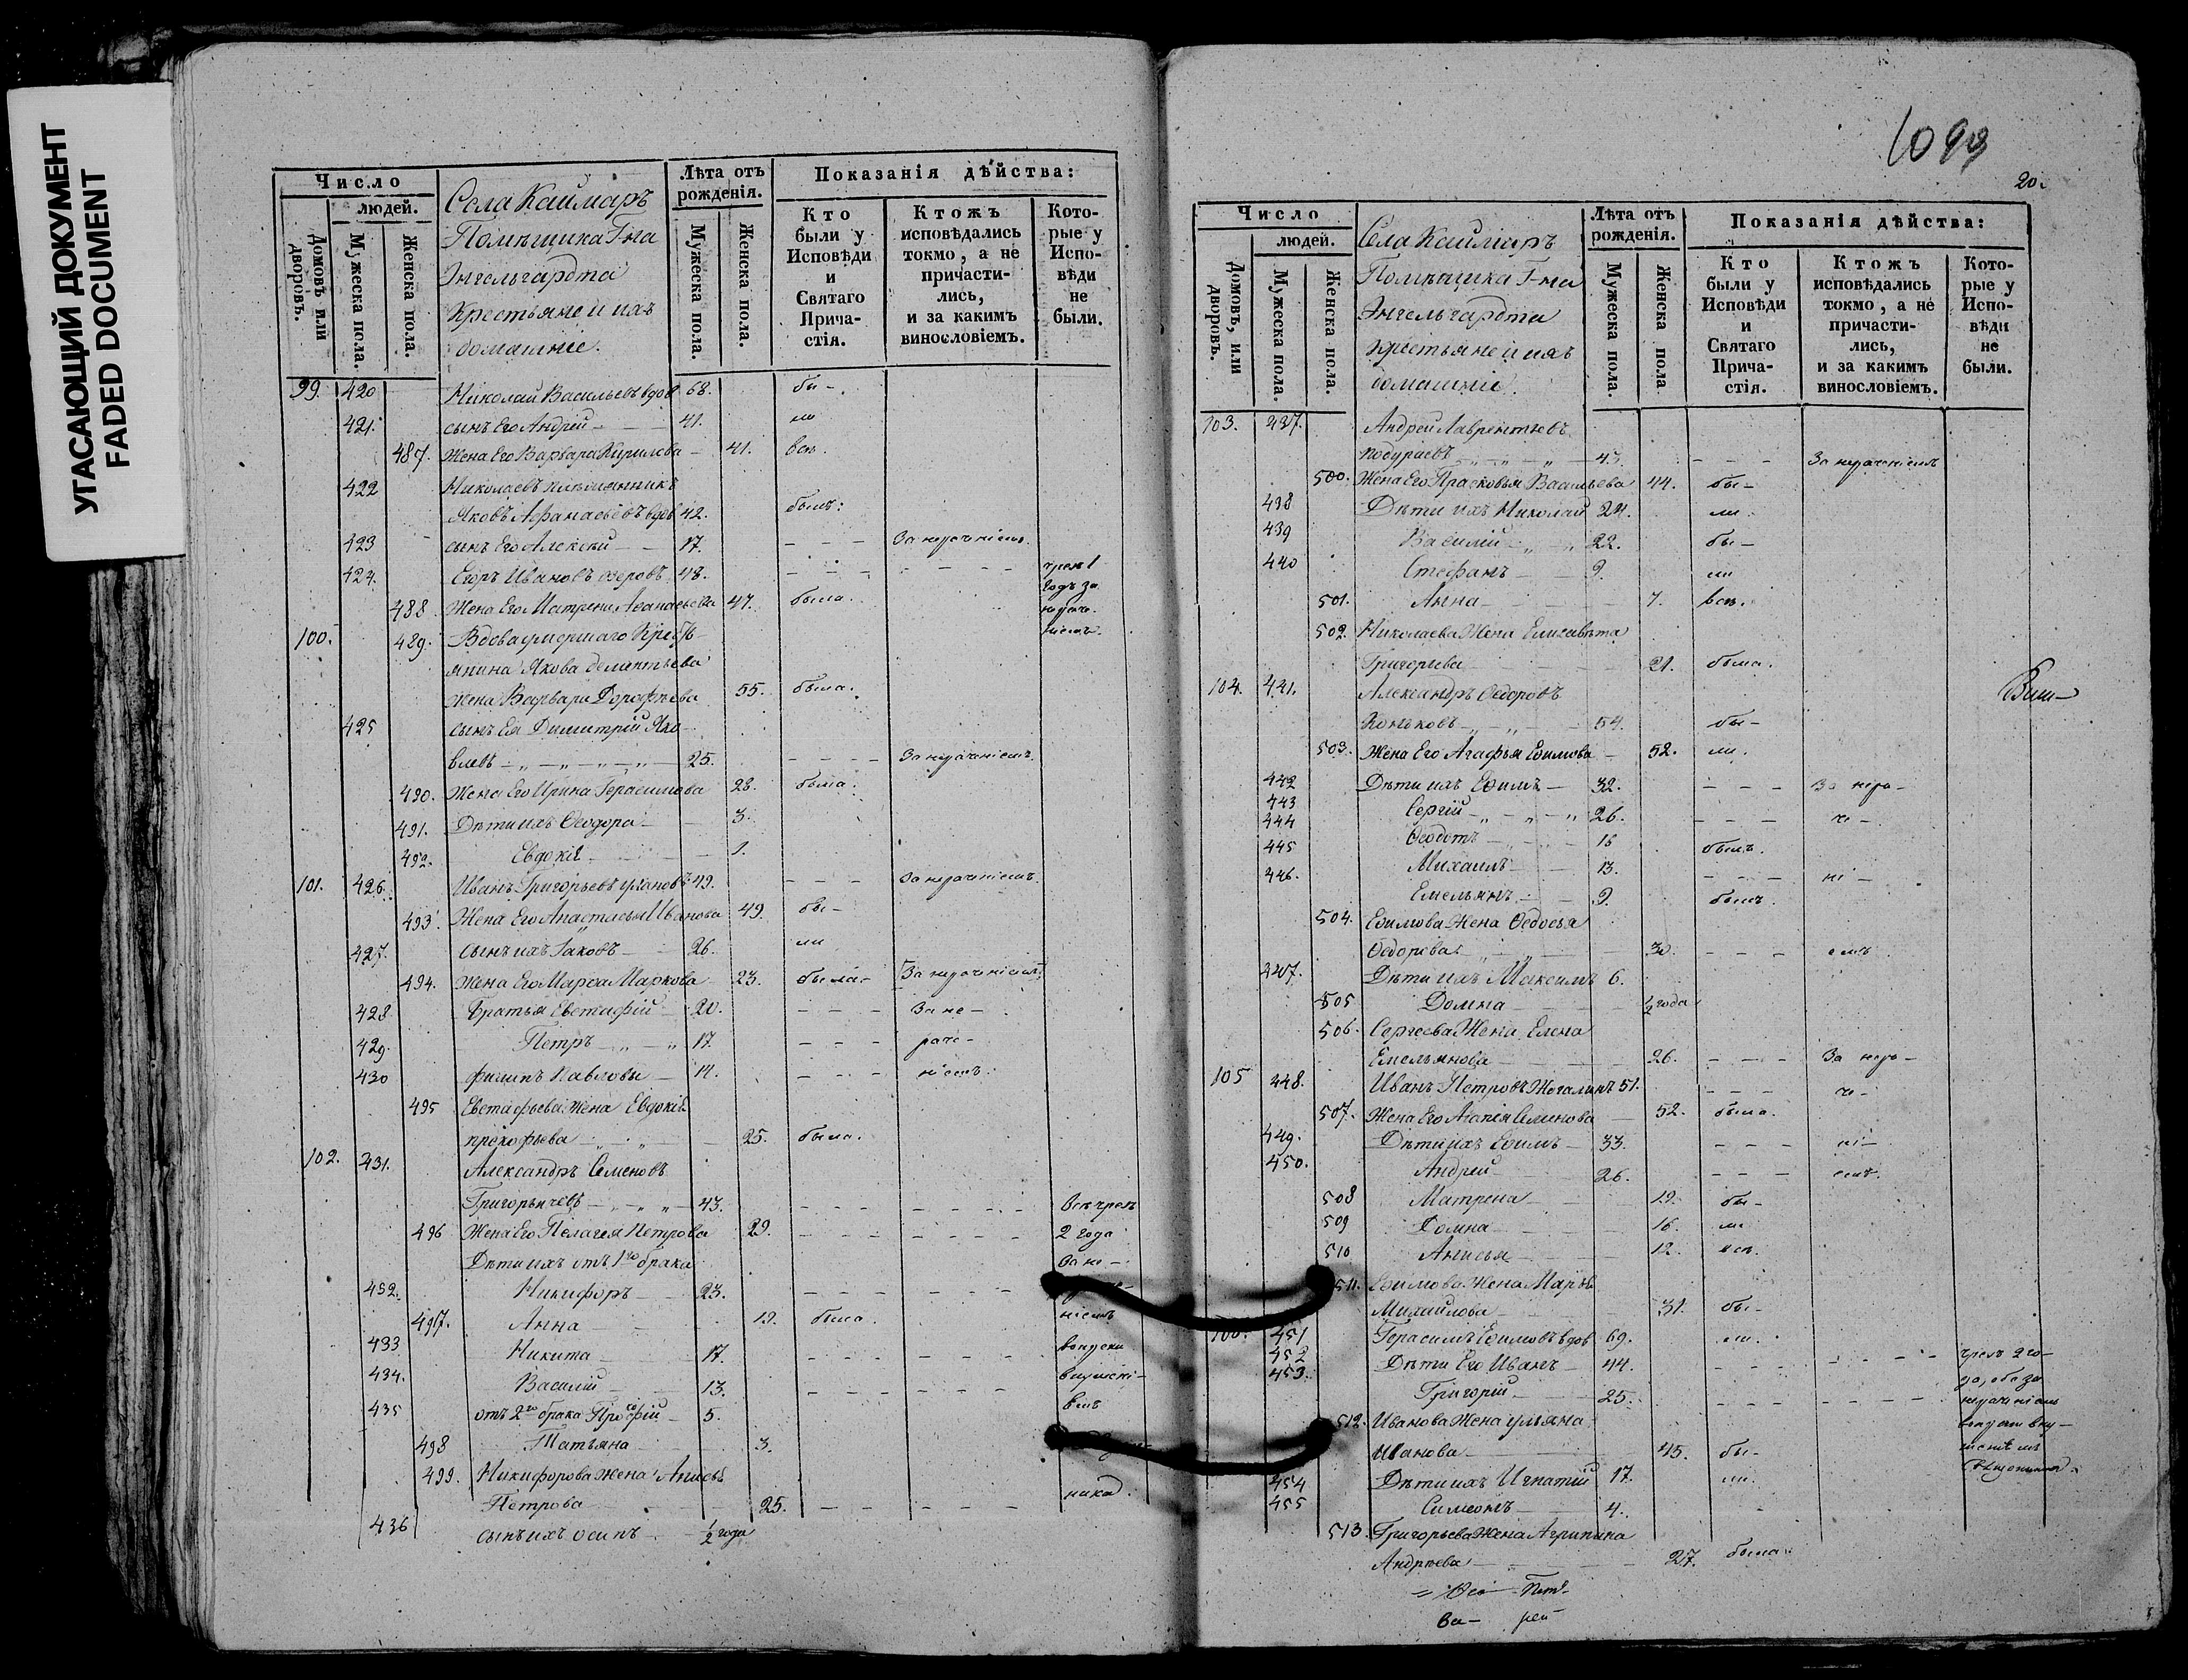 УГАСАЮЩИЙ ДОКУМЕНТ
FADED DOCUMENT
Число
людей.
Домовъ или дворовъ.
Мужеска пола.
Женска пола.
Села Каймаръ
Помѣщика Г-на
Энгельгардта
Крестьяне и ихъ
домашніе.
Лѣта отъ рожденія.
Мужеска пола.
Женска пола.
Показанія дѣйства:
Кто были у Исповѣди и Святаго Причастія.
Ктожъ исповѣдались токмо, а не причастились, и за какимъ винословіемъ.
Которые у Исповѣди не были.
99. 420 Николай Васильевъ вдов 68. бы-
421. сынъ Его Андрей 41. ли
487. Жена Его Варвара Кирилова 41. всѣ.
422 Николаевъ племянникъ
Яковъ Афанасьевъ вдов 42. былъ.
423 сынъ Его Алексей 17. За нераченіемъ.
424. Егоръ Ивановъ 48. чрезъ 1
годъ за
488 Жена Его Матрена 47. была. нераче-
ніемъ.
100. 489. Вдова умершаго Крестья-
янина Якова Дементьева
жена Варвара Дорофѣева 55. была.
425 сынъ Ея Димитрій Яко-
влевъ 25. За нераченіемъ.
490. Жена Его Ирина Герасимова 28. была.
491. Дѣти ихъ Ѳеодора 3.
492. Евдокія 1.
101. 426. Иванъ Григорьевъ 49. За нераченіемъ.
493. Жена Его Анастасья Иванова 49. бы-
427. Сынъ ихъ Іаковъ 26. ли
494. Жена Его Марѳа Маркова 23. была За нераченіемъ
428 Братья Евстафій 20. За не-
429. Петръ 17. раче-
430 Филипъ Павловы 14. ніемъ.
495 Евстафьева Жена Евдокія
прокофьева 25. была.
102. 431. Александръ Семеновъ
Григорьичевъ 43. Всѣ чрезъ
496 Жена Его Пелагея Петрова 29. 2 года
Дѣти ихъ отъ 1го брака За не-
432. Никифоръ 23.
497. Анна 19. была. ніемъ
433 Никита 17.
434. Василій 13.
435 отъ 2го брака 5.
498 Татьяна 3.
499. Никифорова жена Анисья
Петрова 25. ника.
436 сынъ ихъ осипъ 1/2 года
1099
20.
Число
людей.
Домовъ, или дворовъ.
Мужеска пола.
Женска пола.
Села Каймаръ
Помѣщика Г-на
Энгельгардта
крестьяне и ихъ
домашніе.
Лѣта отъ рожденія.
Мужеска пола.
Женска пола
Показанія дѣйства:
Кто были у Исповѣди и Святаго Причастія.
Ктожъ исповѣдались токмо, а не причастились, и за какимъ винословіемъ.
Которые у Исповѣди не были.
103. 437. Андрей Лаврентьевъ
43. За нераченіемъ
500. Жена Его Прасковья Васильева 44. бы-
438 Дѣти ихъ Николай 24. ли.
439 Василій 22. бы-
440 Стефанъ 9. ли
501. Анна 7. всѣ.
502. Николаева Жена Елисавѣта
Григорьева 21. была.
104. 441. Александръ Ѳедоровъ
Коньковъ 54. бы-
503. Жена Его Агафья Ефимова 52. ли.
442 Дѣти ихъ Ефимъ 32. За нера-
443 Сергій 26. че-
444 Ѳеодотъ 16 былъ.
445 Михаилъ 13. ні-
446. Емельянъ 9. былъ.
504. Ефимова Жена Ѳедосья
Ѳедорова 30. емъ
447. Дѣти ихъ Максимъ 6.
505 Домна 1/2 года
506. Сергеева Жена Елена
Емельянова 26. За нера-
105 448. Иванъ Петровъ 51. че-
507. Жена Его Агапія Семенова 52. была.
449. Дѣти ихъ Ефимъ 33. ні-
450. Андрей 26. емъ.
508 Матрена 19. бы-
509 Домна 16. ли
510 Анисья 12. всѣ.
511. Ефимова Жена Марья
Михайлова 31. бы-
106. 451 Герасимъ Ефимовъ вдов 69. ли.
452 Дѣти Его Иванъ 44. чрезъ 2 го-
453. Григорій 25. да, оба за
нераченіемъ
512. Иванова Жена ульяна
Иванова 45. бы-
454 Дѣти ихъ Игнатій 17. ли.
455 Симеонъ 4.
513. Григорьева Жена Агрипина
Андреева 27. была.